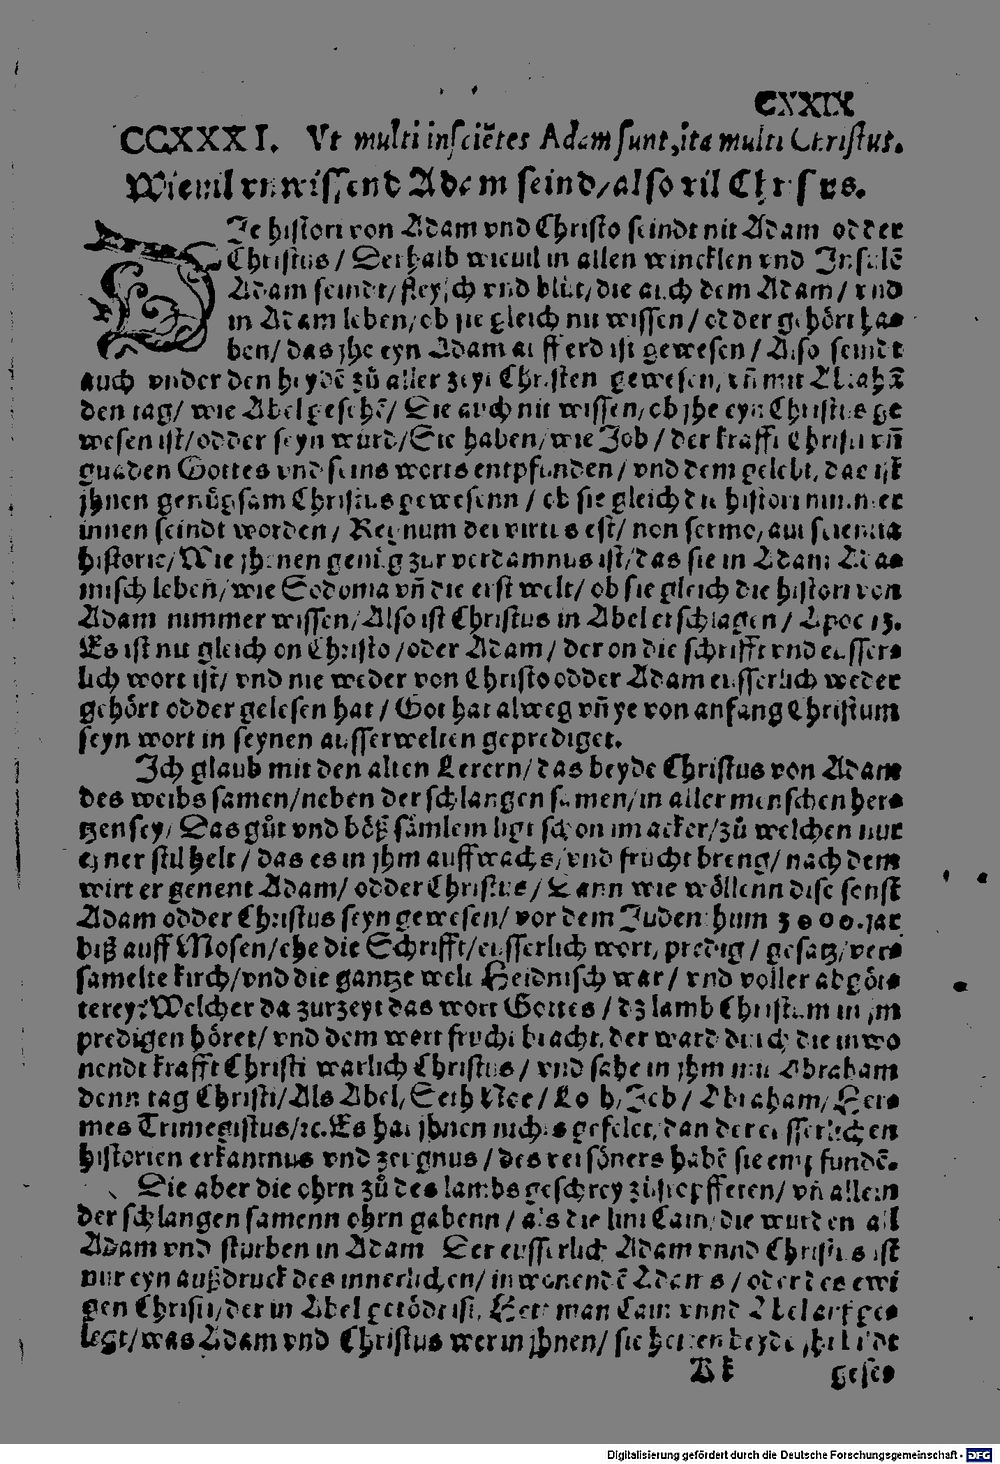 CXXIX
CCXXXI. Vt multi insciẽtes Adam sunt, ita multi Christus.
Wieuil vnwissend Adam seind/also vil Christus.
DJe histori von Adam vnd Christo seindt nit Adam odder
Christus / Derhalb wieuil in allen wincklen vnd Jnsulẽ
Adam seindt/ fleysch vnd blůt, die auch dem Adam / vnd
in Adam leben, ob sie gleich nit wissen / odder gehört ha-
ben/ das jhe eyn Adam auff erd ist gewesen / Also seindt
auch vnder den heydẽ zů aller zeyt Christen gewesen, vñ mit Abrahã
den tag/ wie Abel gesehẽ/ Die auch nit wissen, ob jhe eyn Christus ge
wesen ist/odder seyn würd/Sie haben, wie Job / der krafft Christi vñ
gnaden Gottes vnd seins worts entpfunden / vnd dem gelebt, das ist
jhnen genůgsam Christus gewesenn / ob sie gleich die histori nimmer
innen seindt worden / Regnum dei virtus est/ non sermo, aut scientia
historie/ Wie jhenen genůg zur verdamnus ist/das sie in Adam Ada-
misch leben/ wie Sodoma vñ die erst welt/ ob sie gleich die histori von
Adam nimmer wissen/Also ist Christus in Abel erschlagen / Apoc 13.
Es ist nit gleich on Christo /oder Adam / der on die schrifft vnd eusser-
lich wort ist/ vnd nie weder von Christo odder Adam eusserlich weder
gehört odder gelesen hat / Got hat alweg vñ ye von anfang Christum
seyn wort in seynen ausserwelten geprediget.
Jch glaub mit den alten Lerern/das beyde Christus von Adam
des weibs samen/neben der schlangen samen/in aller menschen her-
tzen sey/ Das gůt vnd böß sämlein ligt schon im acker/zů welchen nur
eyner stil helt / das es in jhm auffwachs/vnd frucht breng/ nach dem
wirt er genent Adam/ odder Christus / Dann wie wöllenn dise sonst
Adam odder Christus seyn gewesen/ vor dem Judenthum 3000.jar
biß auff Mosen/ehe die Schrifft/eusserlich wort, predig / gesatz/ver-
samelte kirch/vnd die gantze welt Heidnisch war / vnd voller abgöt-
terey? Welcher da zur zeyt das wort Gottes / dz lamb Christum in jm
predigen höret/ vnd dem wort frucht bracht, der ward durch die inwo
nendt krafft Christi warlich Christus / vnd sahe in jhm mit Abraham
denn tag Christi/Als Abel, Seth Noe / Loth, Job / Abraham, Her-
mes Trimegistus/ꝛc. Es hat jhnen nichts gefelet, dan der eusserlichen
historien erkantnus vnd zeugnus / des versöners habẽ sie empfundẽ.
Die aber die ohrn zů des lambs geschrey zůstopfferen/ vñ allein
der schlangen samenn ohrn gabenn / als die lini Cain, die wurden all
Adam vnd sturben in Adam Der eusserlich Adam vnnd Christus ist
nur eyn außdruck des innerlichen/ inwonendẽ Adams / oder des ewi
gen Christi/der in Abel getödt ist. Hett man Cain vnnd Abel auffge-
legt/was Adam vnd Christus wer in jhnen/ sie hetten beyde
Kk gese-
Digitalisierung gefördert durch die Deutsche Forschungsgemeinschaft - DFG